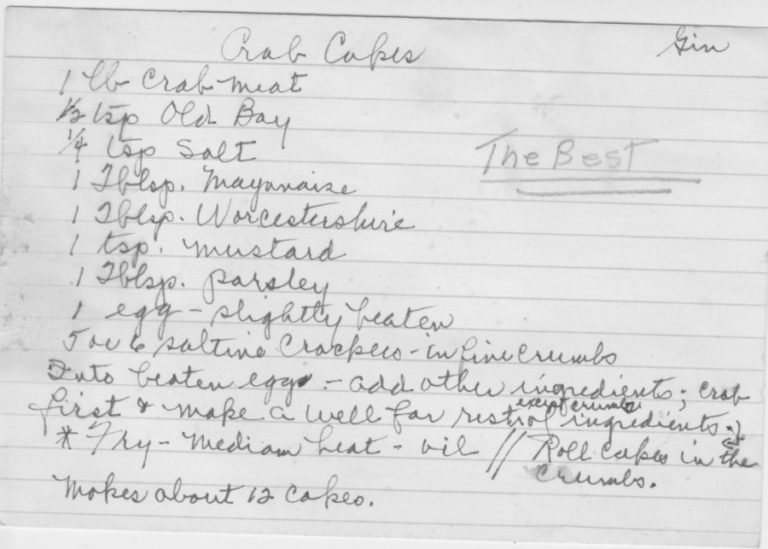 Crab Cakes
Gin
1 lb Crab meat
1/2 tsp Old Bay
1/4 tsp Salt
The Best
1 Tblsp. Mayonnaise
1 Tblsp. Worcestershire
1 tsp. mustard
1 Tblsp. parsley
1 egg - slightly beaten
5 or 6 saltine Crackers - in fine crumbs
Into beaten egg - add other ingredients; crab
except crumbs
first & make a well for rest of ingredients.
* Fry - Medium heat - oil // Roll cakes in the
crumbs.
Makes about 12 cakes.